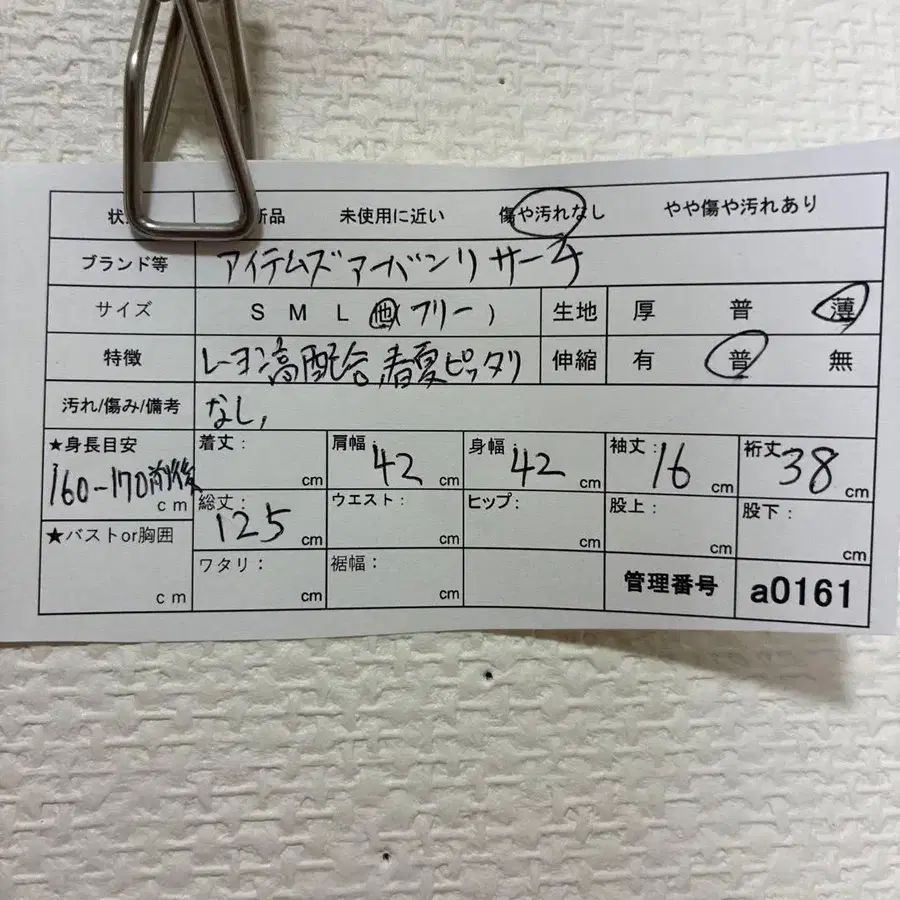 状 新品 未使用に近い 傷や汚れなし やや傷や汚れあり
ブランド等 アイテムズアーバンリサーチ
サイズ S M L 他(フリー) 生地 厚 普 薄
特徴 レーヨン高配合、春夏ピッタリ 伸縮 有 普 無
汚れ/傷み/備考 なし,
★身長目安 160-170前後 cm 着丈: cm 肩幅: 42 cm 身幅: 42 cm 袖丈: 16 cm 裄丈 38 cm
総丈: 125 cm ウエスト: cm ヒップ: cm 股上: cm 股下: cm
★バストor胸囲 cm ワタリ: cm 裾幅: cm cm 管理番号 a0161